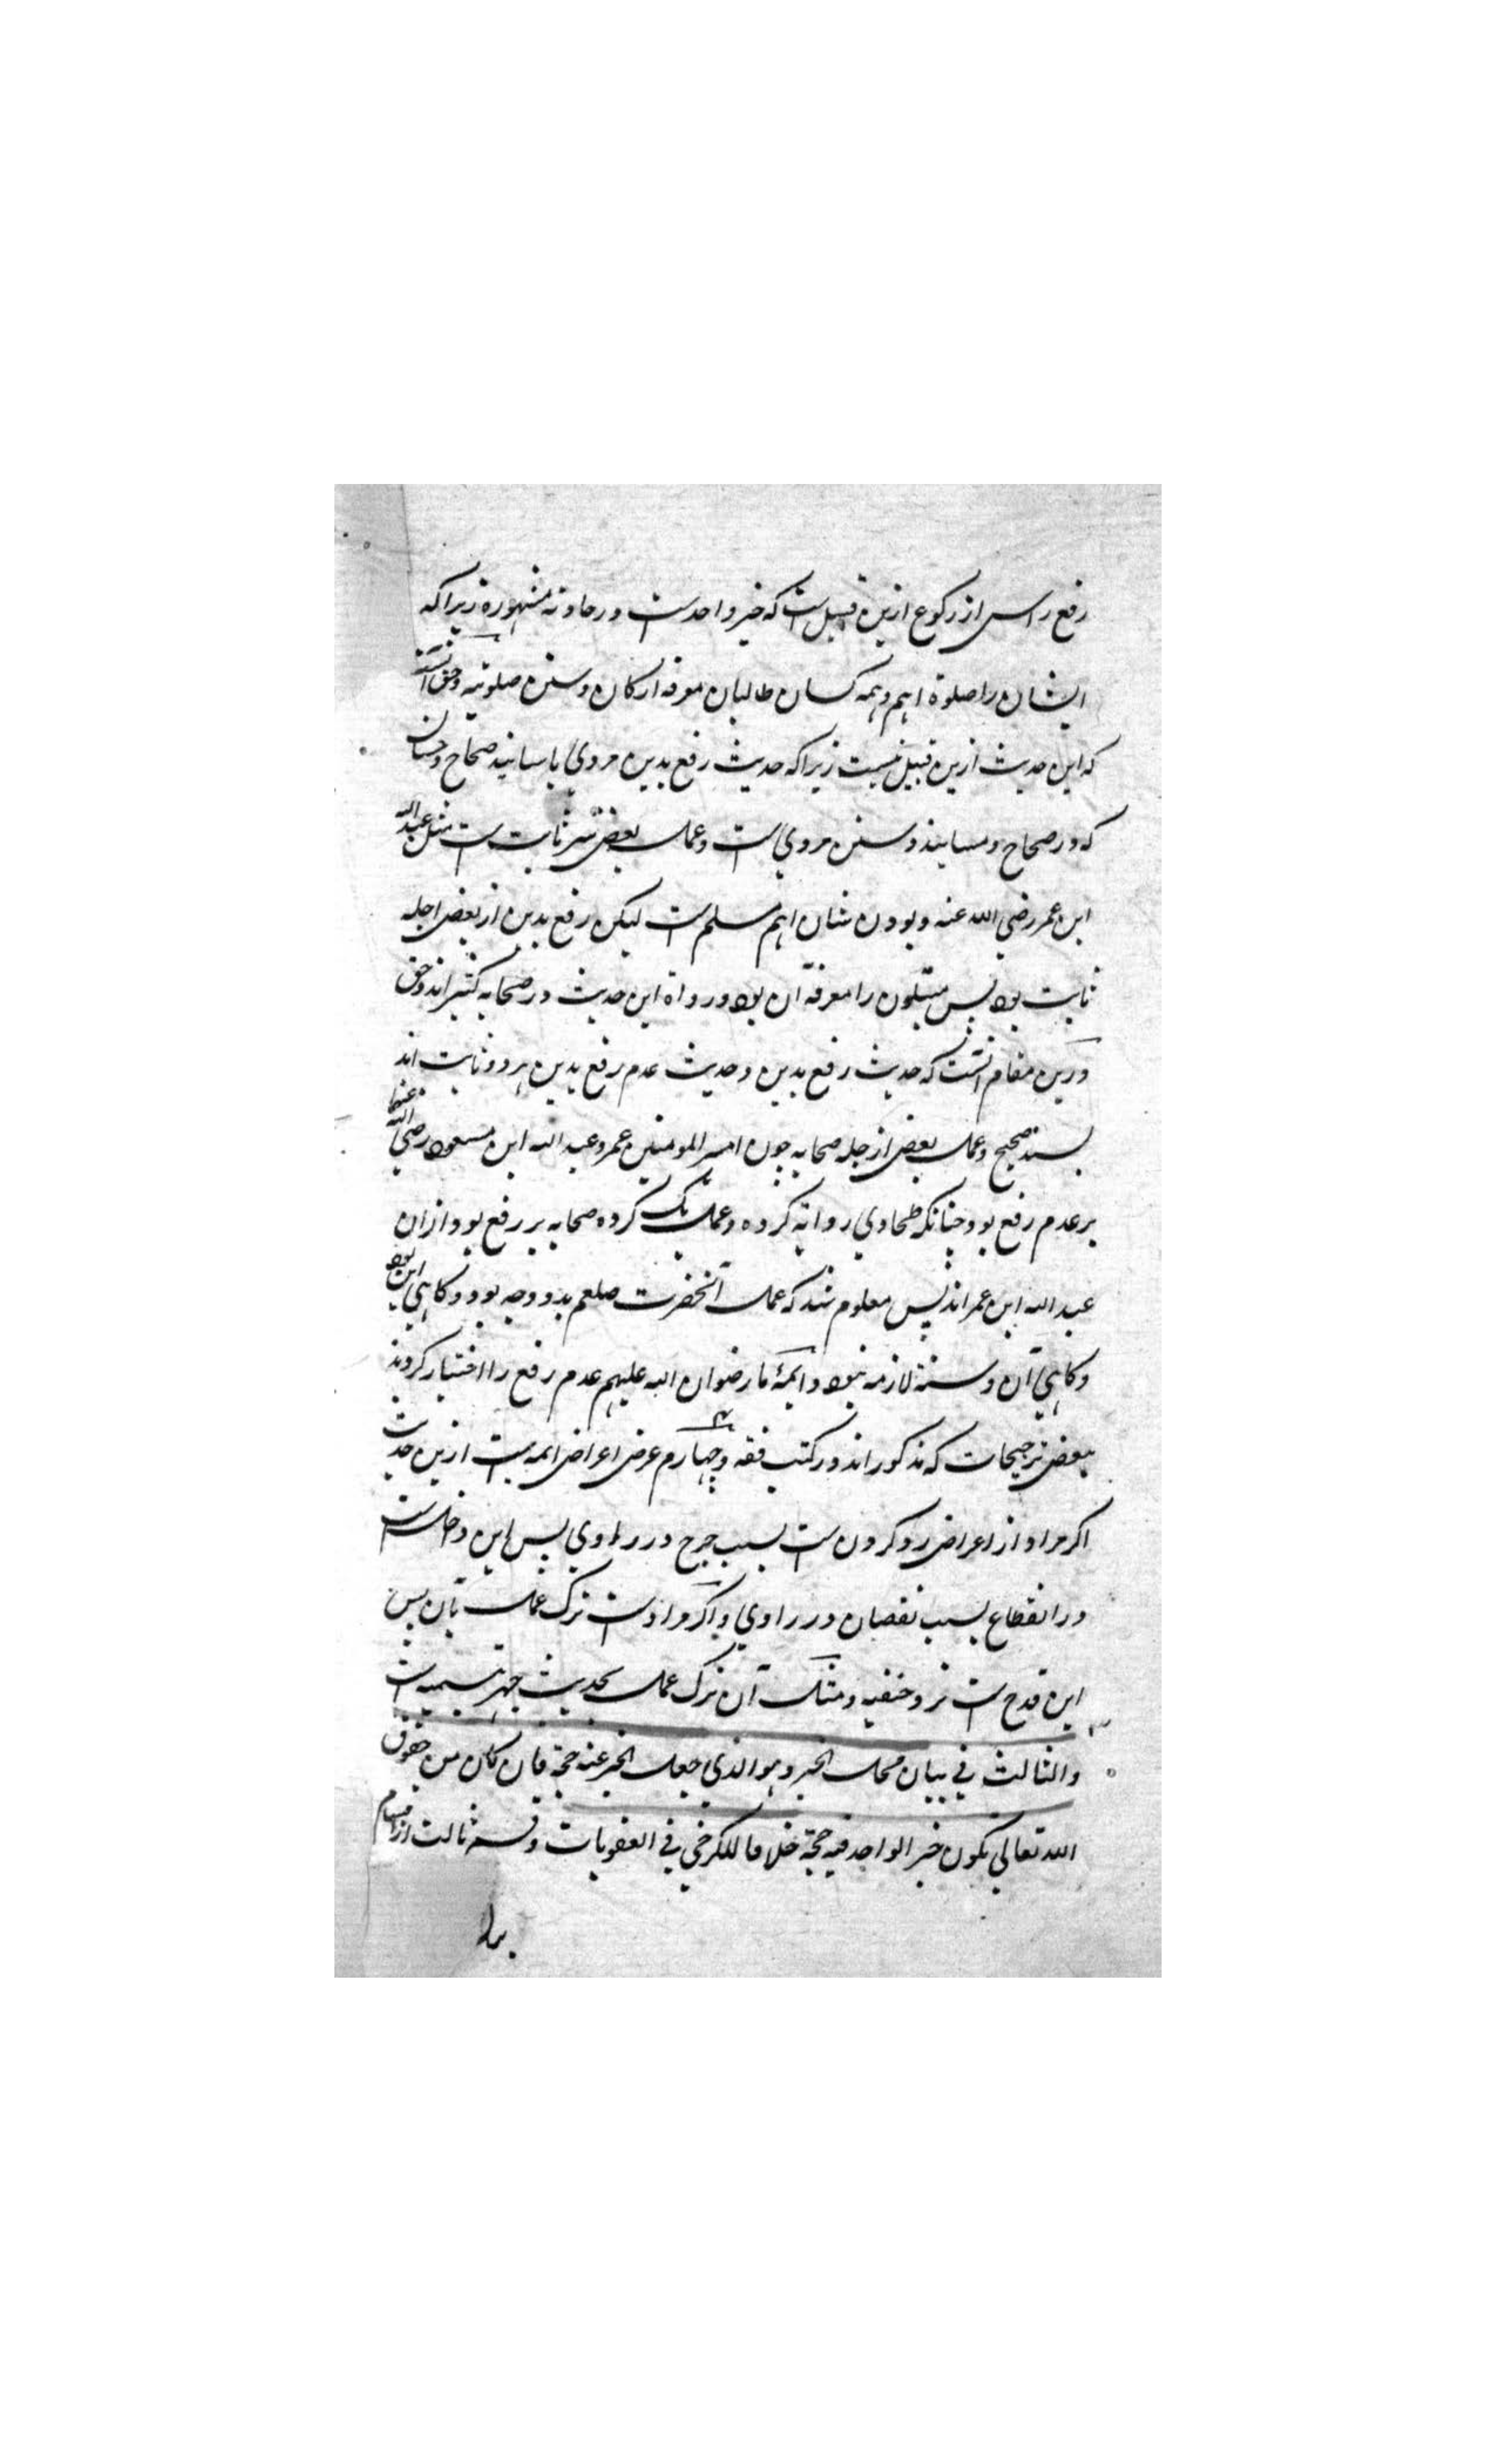 رفع راس از رکوع ازین قبیل ست که خبر واحد ست در حادثه مشهوره زیرا که
ایشان را صلوة اهم و همه کسان طالبان معرفه ارکان و سنن صلوتیه و حق آنست
که این حدیث ازین قبیل نیست زیرا که حدیث رفع یدین مروی باسانید صحاح و حسان
که در صحاح و مسانید و سنن مروی ست و عمل بعض نیز ثابت ست مثل عبد الله
ابن عمر رضی الله عنه و بودن شان اهم مسلم ست لیکن رفع یدین از بعض اجله
ثابت بود پس مبتلون را معرفه آن بود و رواة این حدیث در صحابه کثیر اند و حق
درین مقام آنست که حدیث رفع یدین و حدیث عدم رفع یدین هر دو ثابت اند
بسند صحیح و عمل بعض از جله صحابه چون امیر المومنین عمر و عبد الله ابن مسعود رضی الله عنهما
بر عدم رفع بود چنانکه طحاوی روایة کرده و عمل یک کرده صحابه بر رفع بود ازان
عبد الله ابن عمر اند پس معلوم شد که عمل آنحضرت صلعم بدو وجه بود و کاهی این بود
و کاهی آن و سنة لازمه نبود و ایمۀ ما رضوان الله علیهم عدم رفع را اختیار کردند
ببعض ترجیحات که مذکور اند در کتب فقه و چهارم عرض اعراض ائمه ست ازین حدیث
اکر مراد از اعراض رد کردن ست بسبب جرح در راوی پس این داخل ست
در انقطاع بسبب نقصان در راوی و اکر مراد ست ترک عمل بآن پس
این قدح ست نزد حنفیه و مثل آن ترک عمل بحدیث جهر تسمیه ست
والثالث فی بیان محل الخبر و هو الذی جعل الخبر عنه حجة فان کان من حقوق
الله تعالی یکون خبر الواحد فیه حجة خلافا للکرخی فی العقوبات و قسم ثالث از اقسام